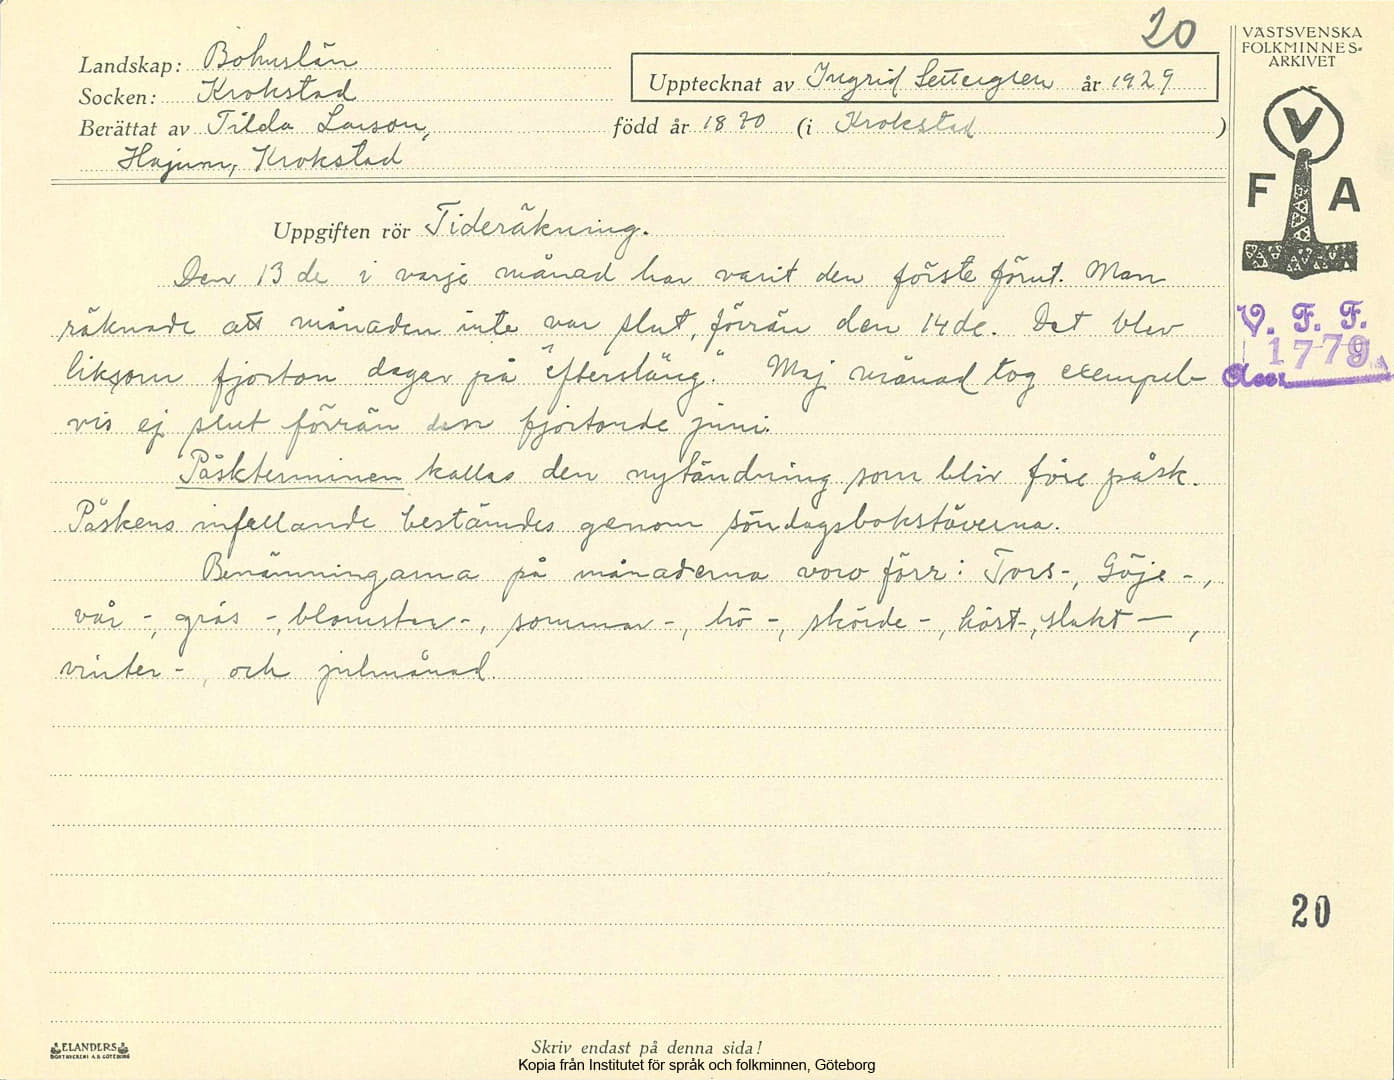 20
Landskap: Bohuslän
Socken: Krokstad
Upptecknat av Ingrid Settergren år 1929
Berättat av Tilda Larson, född år 1870 (i Krokstad)
Hajum, Krokstad
Uppgiften rör Tideräkning.
Den 13de i varje månad har varit den förste förut. Man
räknade att månaden inte var slut, förrän den 14de. Det blev
liksom fjorton dagar på "eftersläng". Maj månad tog exempel-
vis ej slut förrän den fjortonde juni.
Påskterminen kallas den nytändning som blir före påsk.
Påskens infallande bestämdes genom söndagsbokstäverna.
Benämningarna på månaderna voro förr: Tors-, Göje-,
vår-, gräs-, blomster-, sommar-, hö-, skörde-, höst-, slakt-,
vinter-, och julmånad.
VÄSTSVENSKA
FOLKMINNES-
ARKIVET
V
F A
V. F. F.
1779
Acc.
20
ELANDERS
BOKTRYCKERI A.B. GÖTEBORG
Skriv endast på denna sida!
Kopia från Institutet för språk och folkminnen, Göteborg